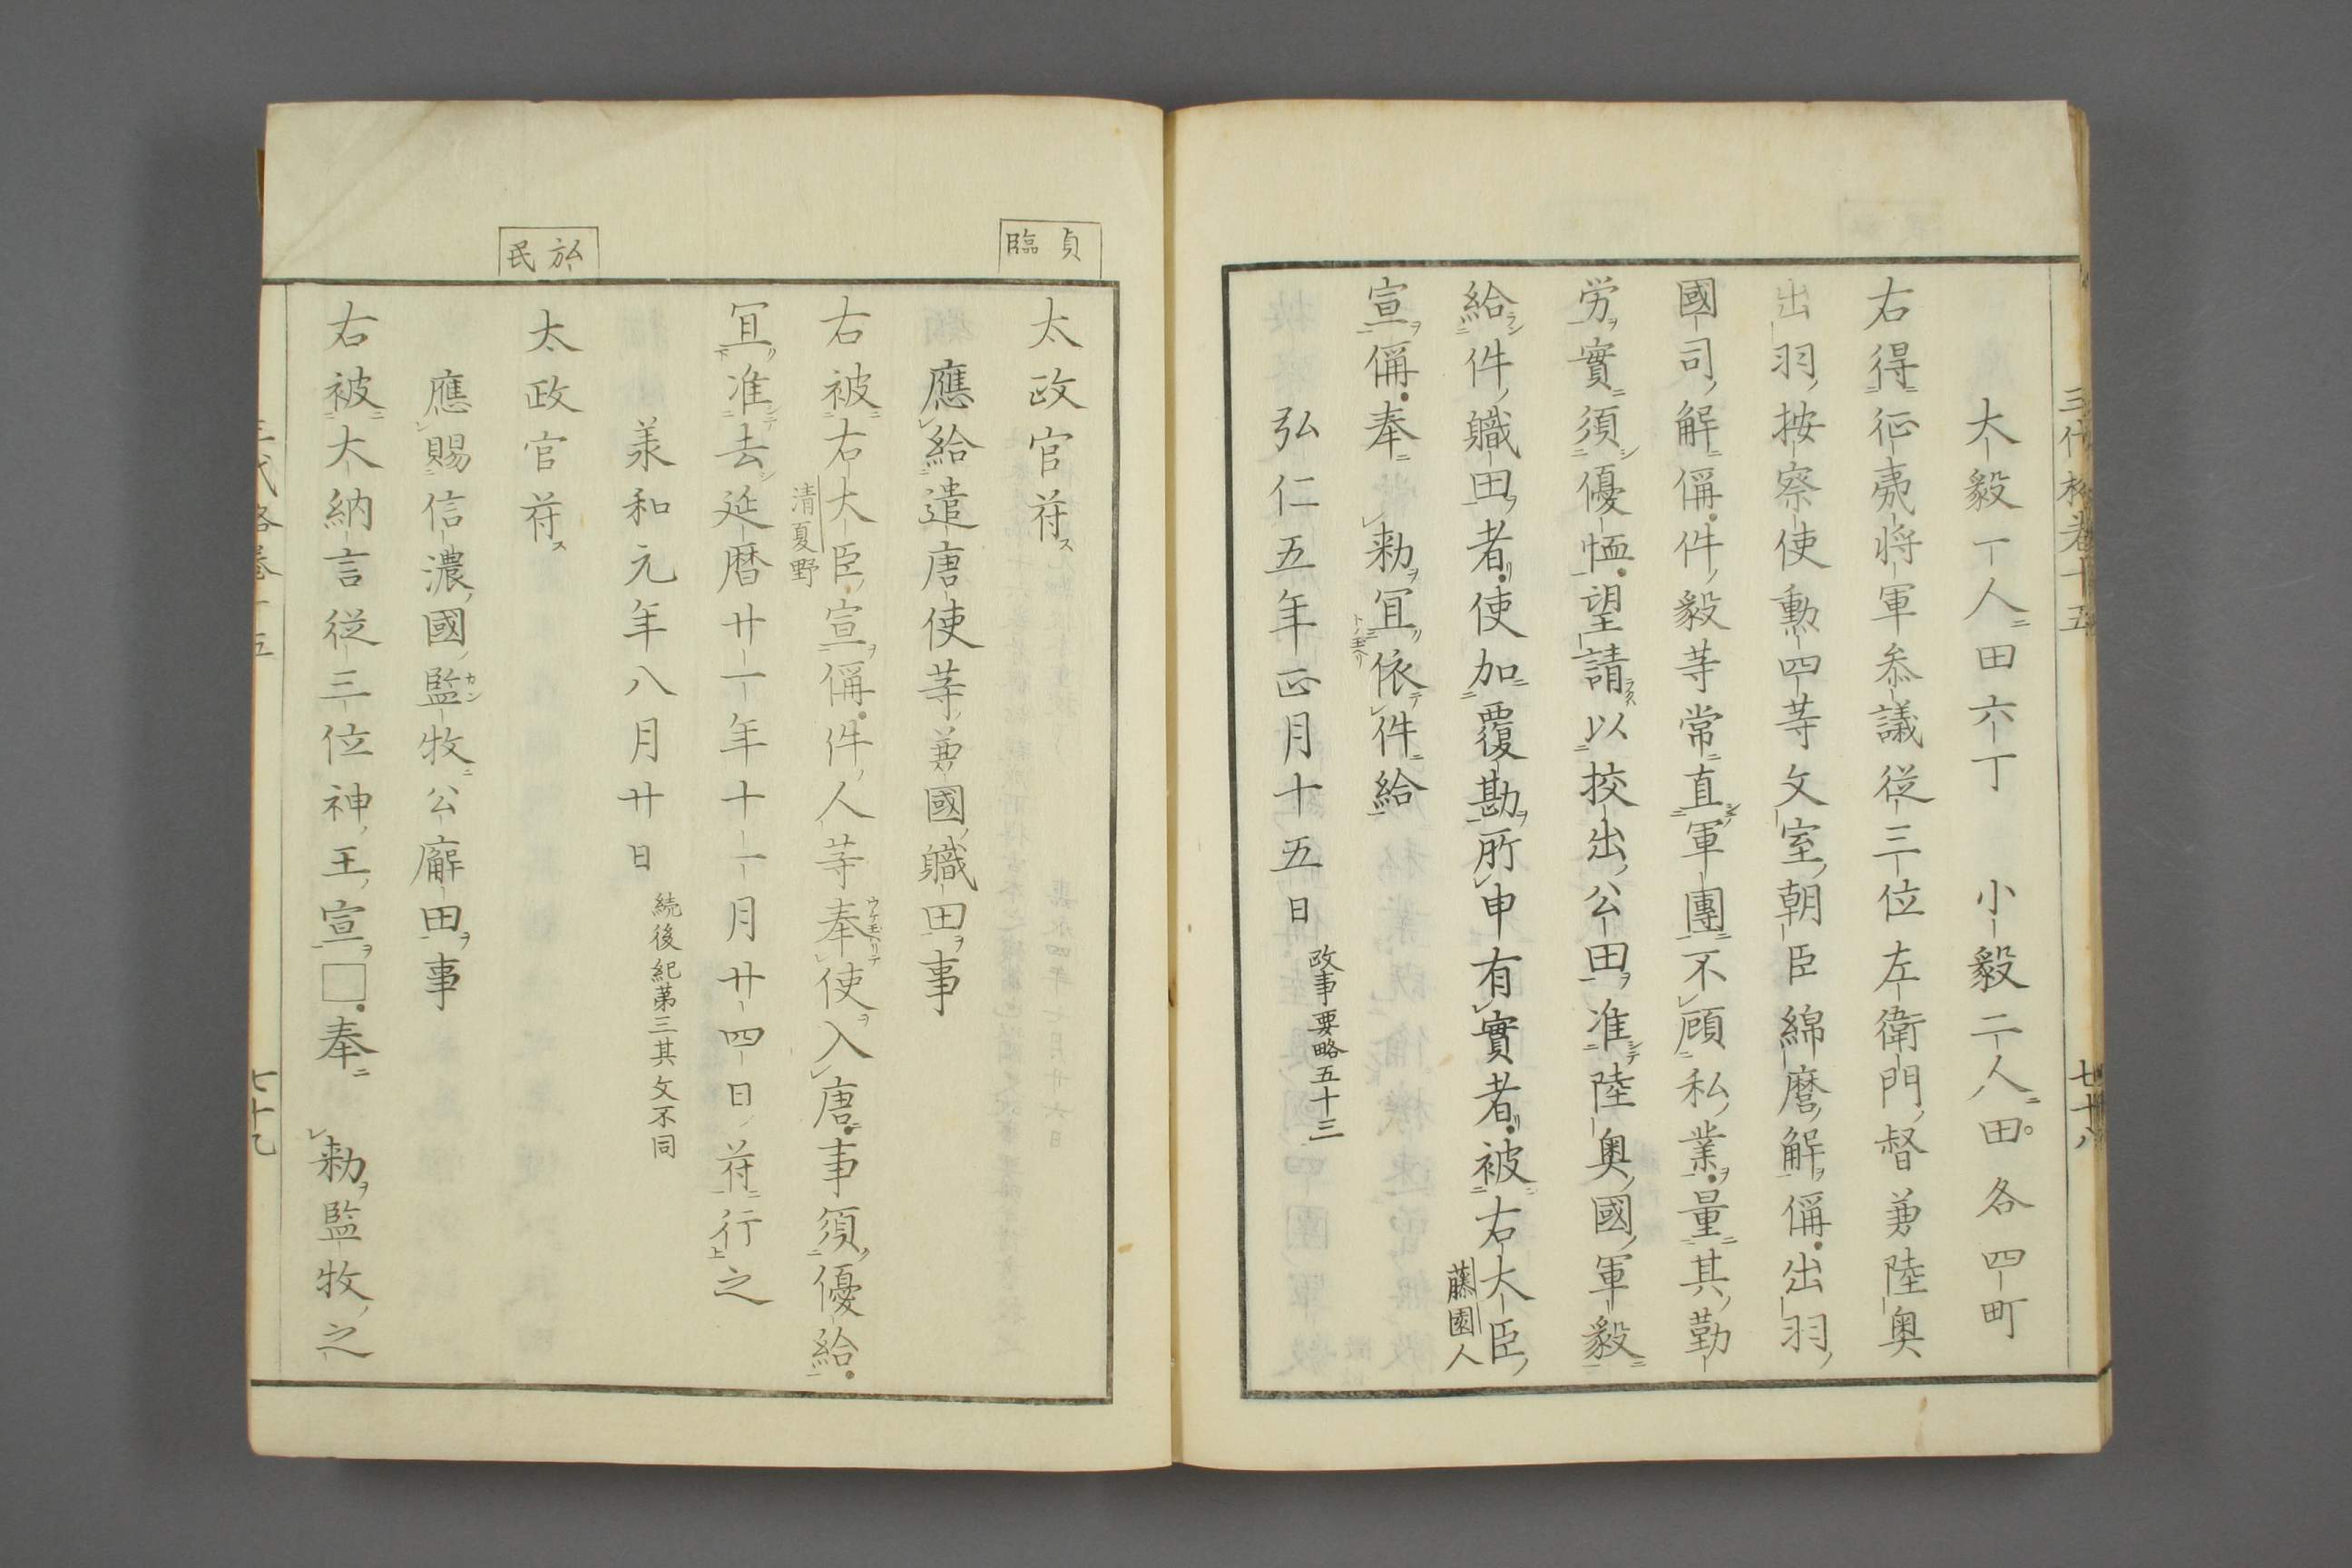 三代格卷十五
七十八
大毅一人田六丁 小毅二人田各四町
右得征夷将軍参議従三位左衛門督兼陸奥
出羽按察使勲四等文室朝臣綿麿解偁出羽
國司解偁件毅等常直軍團不顧私業量其勤
労實須優恤望請以挍出公田准陸奥國軍毅
給件職田者使加覆勘所申有實者被右大臣
藤園人
宣偁奉 勅冝依件給
弘仁五年正月十五日
政事要略五十三
貞臨
太政官符
應給遣唐使等兼國職田事
右被右大臣宣偁件人等奉使入唐事須優給
清夏野
冝准去延暦廿一年十一月廿四日符行之
承和元年八月廿日
続後紀第三其文不同
弘民
太政官符
應賜信濃國監牧公廨田事
右被大納言従三位神王宣□奉 勅監牧之
七十九